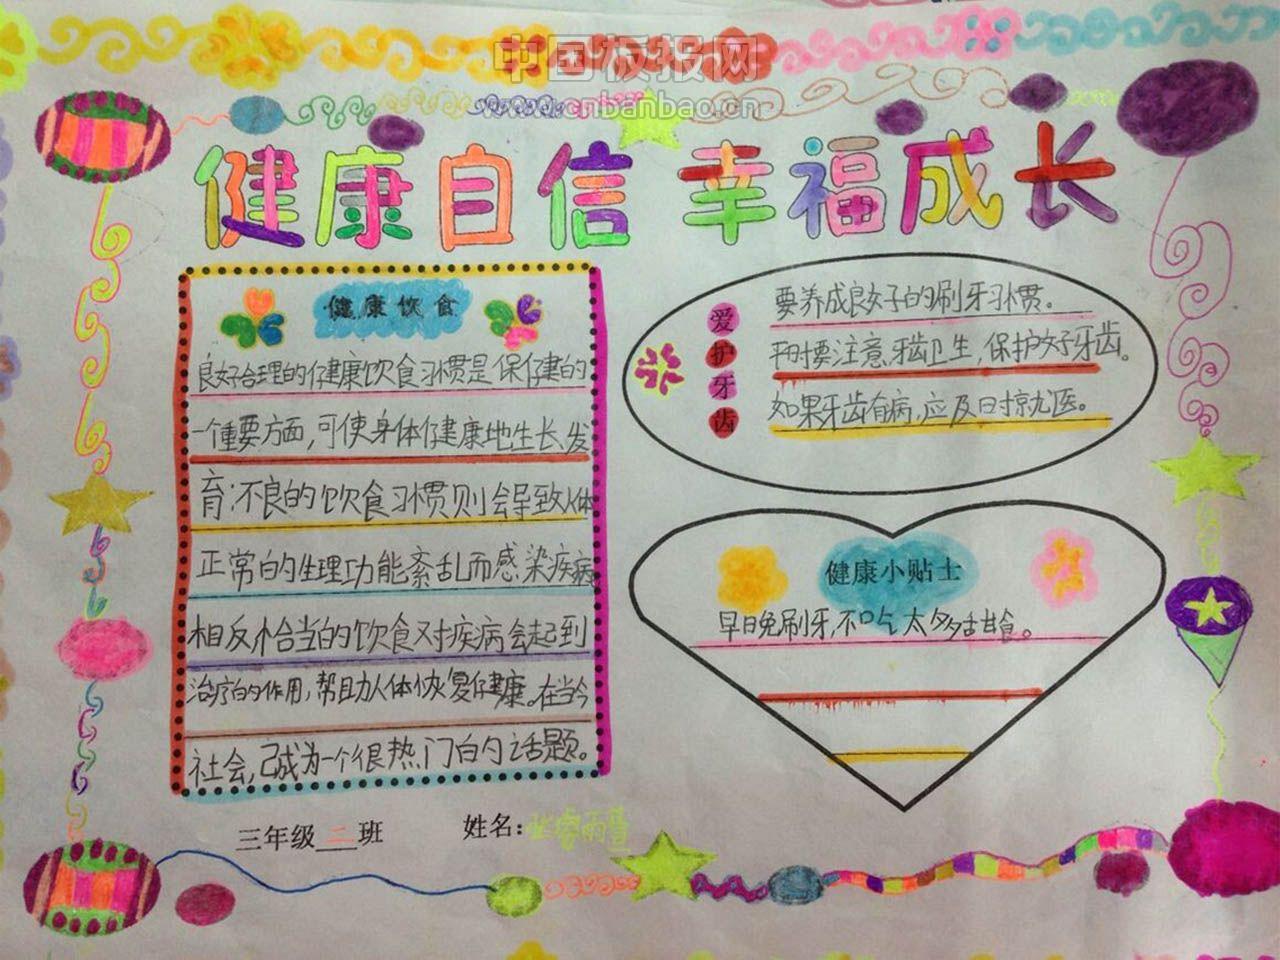 中国板报网
www.cnbanbao.cn
健康自信 幸福成长
健康饮食
良好合理的健康饮食习惯是保健的
一个重要方面,可使身体健康地生长、发
育;不良的饮食习惯则会导致人体
正常的生理功能紊乱而感染疾病
相反,恰当的饮食对疾病会起到
治疗的作用,帮助人体恢复健康。在当今
社会,已成为一个很热门的话题。
爱护牙齿
要养成良好的刷牙习惯。
平时要注意牙齿卫生,保护好牙齿。
如果牙齿有病,应及时就医。
健康小贴士
早日晚刷牙,不吃太多甜食。
三年级二班
姓名: